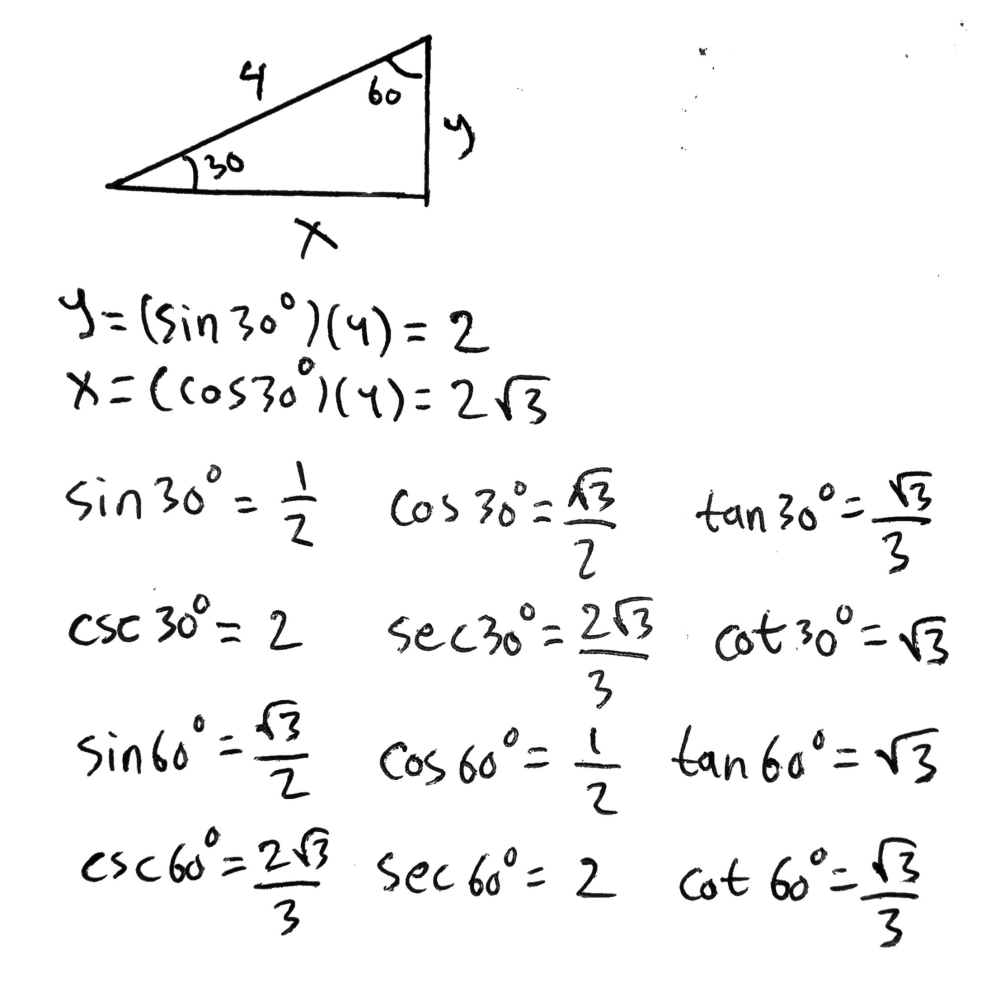 4
60
y
30
x
y = (sin 30°)(4) = 2
x = (cos 30°)(4) = 2√3
sin 30° = 1/2 cos 30° = √3/2 tan 30° = √3/3
csc 30° = 2 sec 30° = 2√3/3 cot 30° = √3
sin 60° = √3/2 cos 60° = 1/2 tan 60° = √3
csc 60° = 2√3/3 sec 60° = 2 cot 60° = √3/3